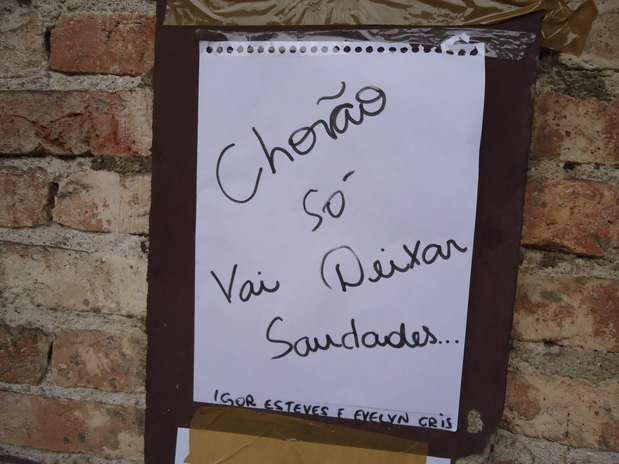 Chorão
só
Vai Deixar
Saudades...
IGOR ESTEVES E EVELYN CRIS